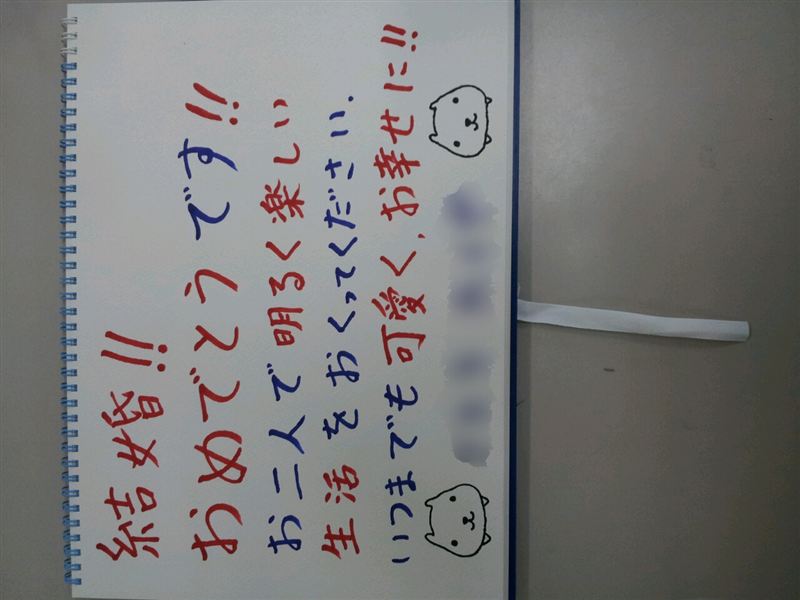 結婚!!
おめでとうです!!
お二人で明るく楽しい
生活をおくってください.
いつまでも可愛く、お幸せに!!